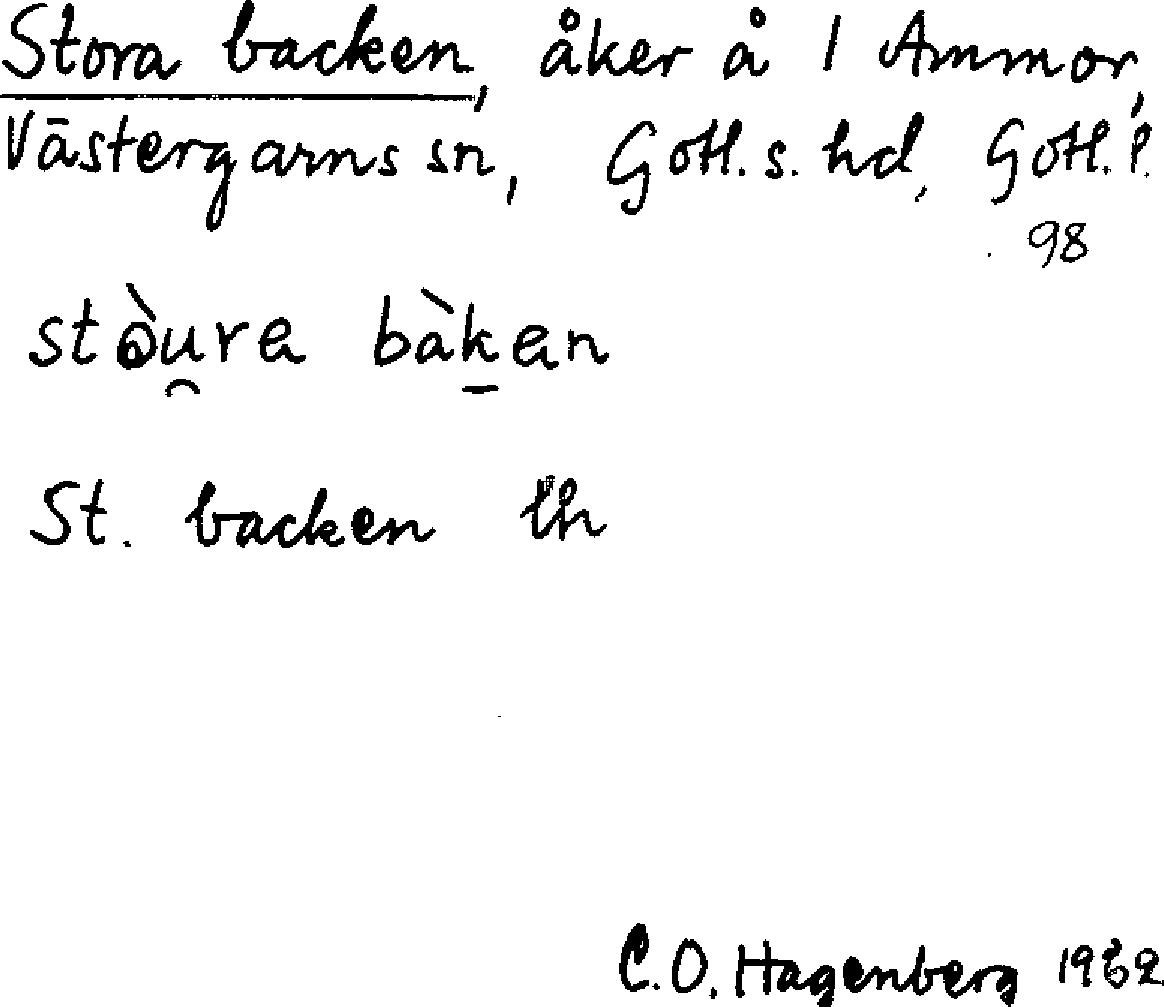 Stora backen, åker å 1 Ammor,
Västergarns sn, Gotl. s. hd, Gotl. l.
98
stòu̯ra bàk̲an
St. backen th
C.O. Hagenberg